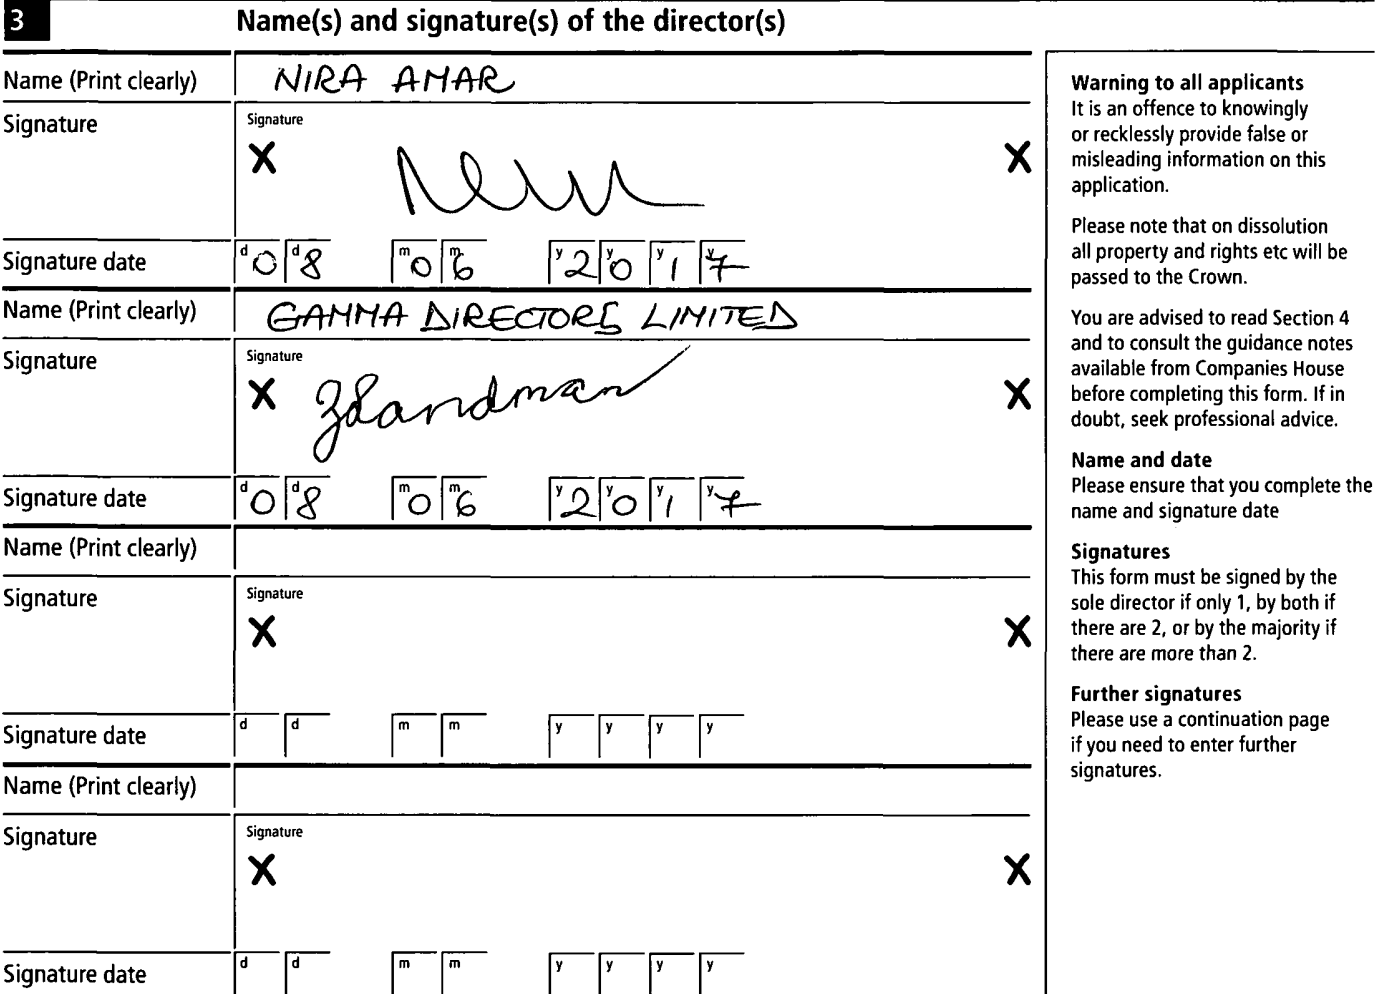 3 Name(s) and signature(s) of the director(s)
Name (Print clearly) NIRA AMAR
Signature Signature
X X
Signature date d0 d8 m0 m6 y2 y0 y1 y7
Name (Print clearly) GAMMA DIRECTORS LIMITED
Signature Signature
X X
Signature date d0 d8 m0 m6 y2 y0 y1 y7
Name (Print clearly)
Signature Signature
X X
Signature date d d m m y y y y
Name (Print clearly)
Signature Signature
X X
Signature date d d m m y y y y
Warning to all applicants
It is an offence to knowingly
or recklessly provide false or
misleading information on this
application.
Please note that on dissolution
all property and rights etc will be
passed to the Crown.
You are advised to read Section 4
and to consult the guidance notes
available from Companies House
before completing this form. If in
doubt, seek professional advice.
Name and date
Please ensure that you complete the
name and signature date
Signatures
This form must be signed by the
sole director if only 1, by both if
there are 2, or by the majority if
there are more than 2.
Further signatures
Please use a continuation page
if you need to enter further
signatures.